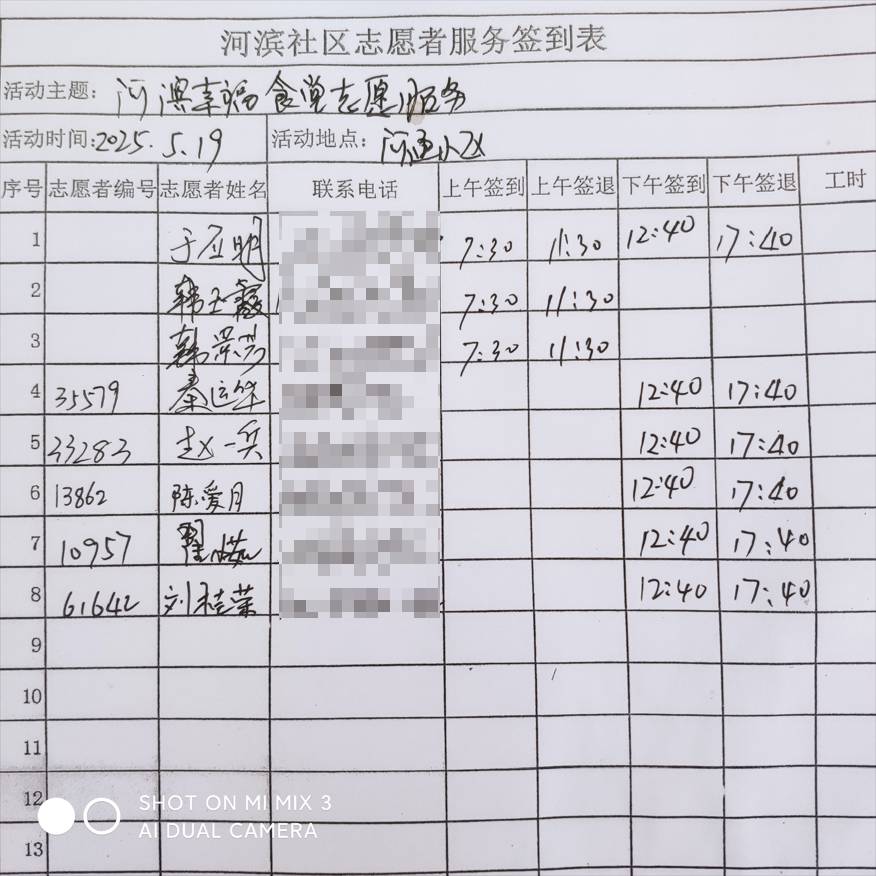 河滨社区志愿者服务签到表
活动主题：河滨幸福食堂志愿服务
活动时间:2025.5.19 活动地点：
序号 志愿者编号 志愿者姓名 联系电话 上午签到 上午签退 下午签到 下午签退 工时
1 于应明 7:30 11:30 12:40 17:40
2 韩玉霞 7:30 11:30
3 韩荣芬 7:30 11:30
4 35579 秦运华 12:40 17:40
5 33283 赵一兵 12:40 17:40
6 13862 陈爱月 12:40 17:40
7 10957 12:40 17:40
8 61642 刘桂荣 12:40 17:40
9
10
11
12
13
SHOT ON MI MIX 3
AI DUAL CAMERA